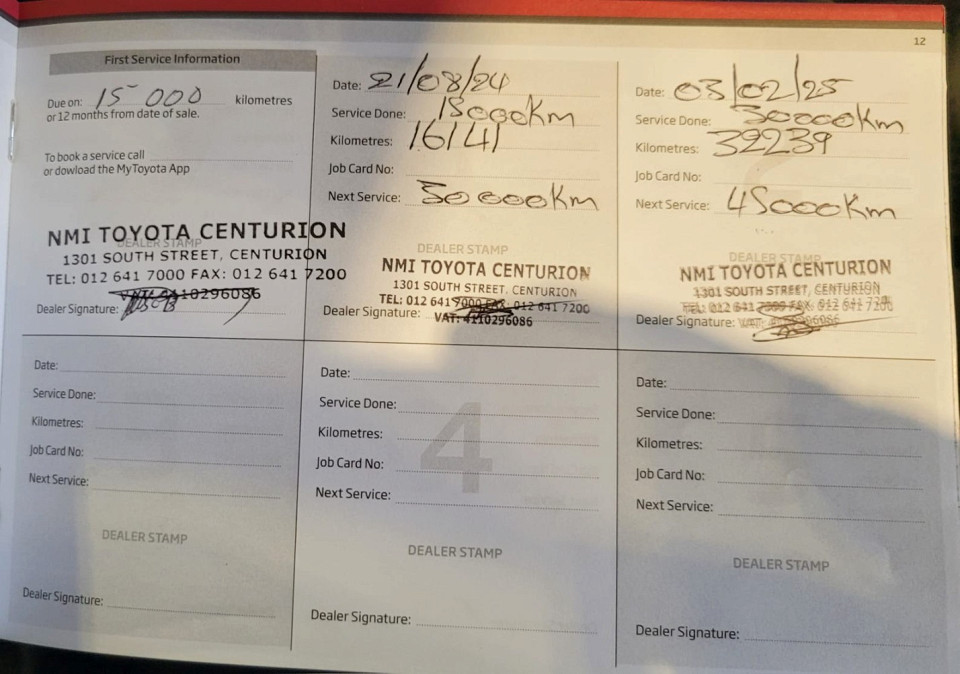 12
First Service Information
Due on: 15 000 kilometres
or 12 months from date of sale.
To book a service call
or dowload the MyToyota App
DEALER STAMP
NMI TOYOTA CENTURION
1301 SOUTH STREET, CENTURION
TEL: 012 641 7000 FAX: 012 641 7200
4110296086
Dealer Signature:
Date: 21/08/24
Service Done: 15000km
Kilometres: 16141
Job Card No:
Next Service: 30 000Km
DEALER STAMP
NMI TOYOTA CENTURION
1301 SOUTH STREET, CENTURION
TEL: 012 641 7000 FAX: 012 641 7200
Dealer Signature: VAT: 4110296086
Date: 03/02/25
Service Done: 30000Km
Kilometres: 32239
Job Card No:
Next Service: 45000Km
DEALER STAMP
NMI TOYOTA CENTURION
1301 SOUTH STREET, CENTURION
TEL: 012 641 7000 FAX: 012 641 7200
Dealer Signature:
Date:
Service Done:
Kilometres:
Job Card No:
Next Service:
DEALER STAMP
Dealer Signature:
4
Date:
Service Done:
Kilometres:
Job Card No:
Next Service:
DEALER STAMP
Dealer Signature:
Date:
Service Done:
Kilometres:
Job Card No:
Next Service:
DEALER STAMP
Dealer Signature: